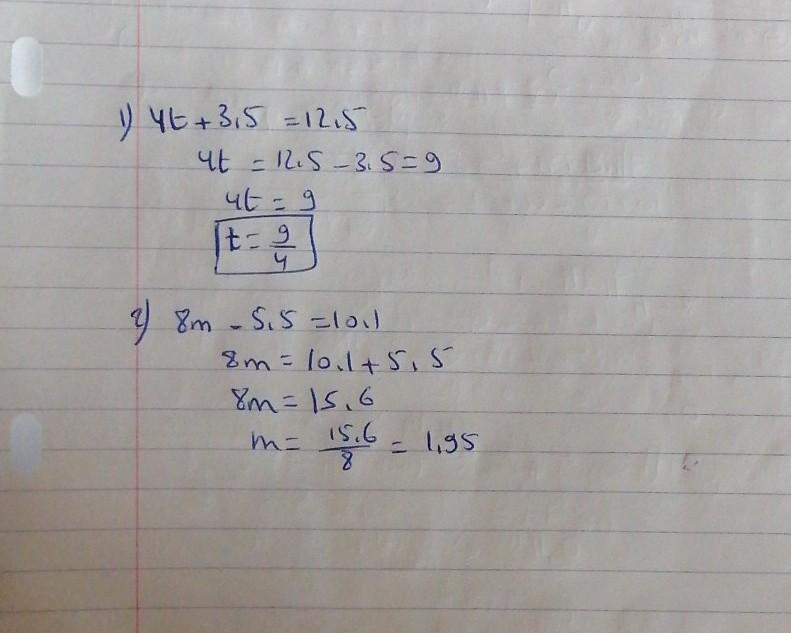 1) 4t + 3.5 = 12.5
4t = 12.5 - 3.5 = 9
4t = 9
t = 9/4
2) 8m - 5.5 = 10.1
8m = 10.1 + 5.5
8m = 15.6
m = 15.6/8 = 1.95